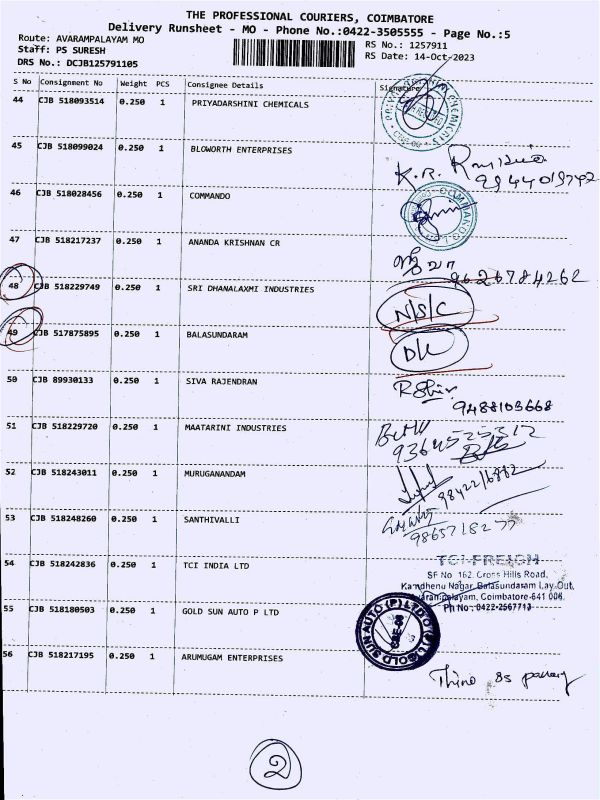 THE PROFESSIONAL COURIERS, COIMBATORE
Delivery Runsheet - MO - Phone No.:0422-3505555 - Page No.:5
Route: AVARAMPALAYAM MO
RS No.: 1257911
Staff: PS SURESH
RS Date: 14-Oct-2023
DRS No.: DCJB125791105
S No Consignment No Weight PCS Consignee Details Signature
44 CJB 518093514 0.250 1 PRIYADARSHINI CHEMICALS
45 CJB 518099024 0.250 1 BLOWORTH ENTERPRISES
K.R.
9944019742
46 CJB 518028456 0.250 1 COMMANDO
47 CJB 518217237 0.250 1 ANANDA KRISHNAN CR
9626784262
48 CJB 518229749 0.250 1 SRI DHANALAXMI INDUSTRIES
N/S/C
49 CJB 517875895 0.250 1 BALASUNDARAM
D/L
50 CJB 89930133 0.250 1 SIVA RAJENDRAN
9488103668
51 CJB 518229720 0.250 1 MAATARINI INDUSTRIES
9364525312
52 CJB 518243011 0.250 1 MURUGANANDAM
9842216882
53 CJB 518248260 0.250 1 SANTHIVALLI
9865718277
54 CJB 518242836 0.250 1 TCI INDIA LTD
TCI FREIGH
SF No 162, Cross Hills Road,
Kamdhenu Nagar, Balasundaram Lay-Out,
Avarampalayam, Coimbatore-641 006.
Ph No: 0422-2567713
55 CJB 518180503 0.250 1 GOLD SUN AUTO P LTD
GOLD SUN AUTO (P) LTD
56 CJB 518217195 0.250 1 ARUMUGAM ENTERPRISES
2